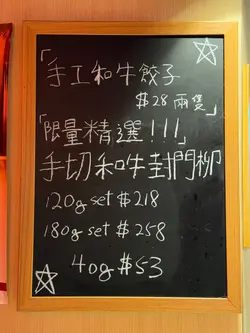 「手工和牛餃子
$28兩隻」
「限量精選!!!」
手切和牛封門柳
120g set $218
180g set $258
40g $53